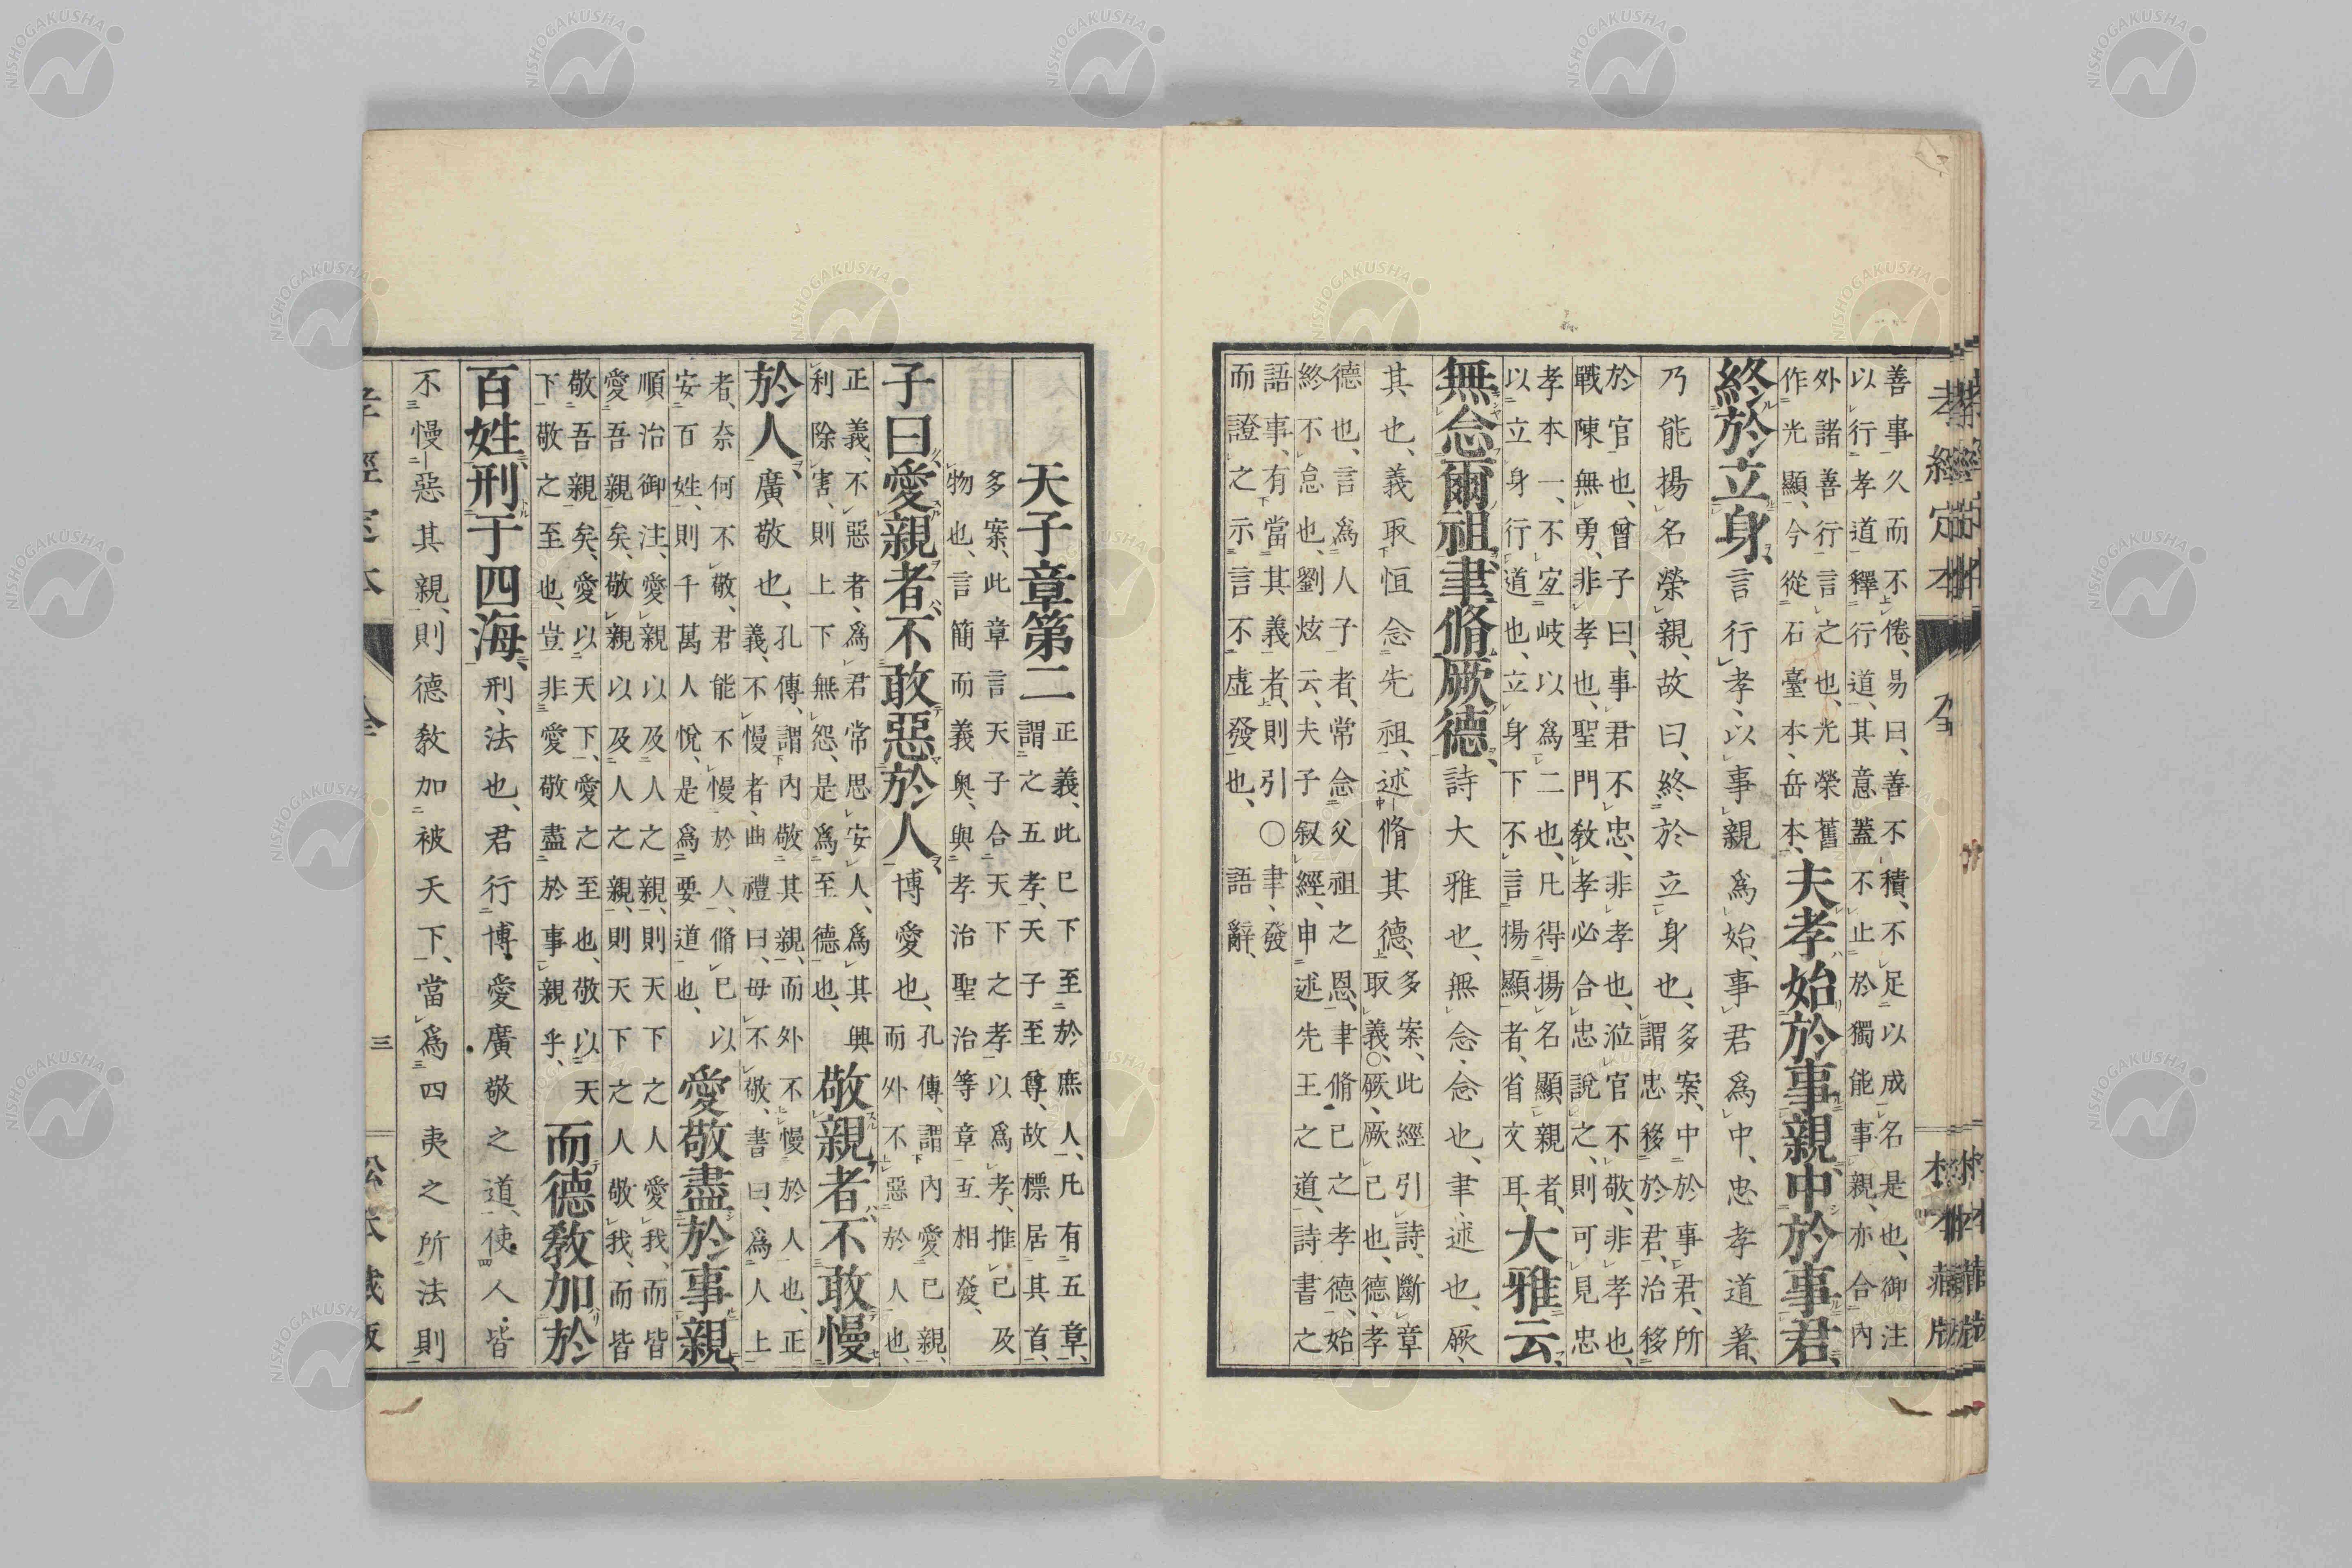 善事久而不倦、易曰、善不積、不足以成名是也、御注
以行孝道釋行道、其意蓋不止於獨能事親、亦合内
外諸善行言之也、光榮舊
作光顯、今從石臺本、岳本、
夫孝始於事親、中於事君、
終於立身、言行孝、以事親爲始、事君爲中、忠孝道著、
乃能揚名榮親、故曰、終於立身也、
多案、中於事君、所
謂忠移於君、治移
於官也、曾子曰、事君不忠、非孝也、涖官不敬、非孝也、
戰陳無勇、非孝也、聖門敎孝必合忠說之、則可見忠
孝本一、不宐岐以爲二也、凡得揚名顯親者、
以立身行道也、立身下不言揚顯者、省文耳、
大雅云、
無念爾祖、聿脩厥德、詩大雅也、無念、念也、聿、述也、厥、
其也、義取恒念先祖、述脩其德、
多案、此經引詩、斷章
取義、○厥、厥己也、德、孝
德也、言爲人子者、常念父祖之恩、聿脩己之孝德、始
終不怠也、劉炫云、夫子叙經、申述先王之道、詩書之
語事、有當其義者、則引○聿、發
而證之、示言不虛發也、語辭、
天子章第二
正義、此已下至於庶人、凡有五章、
謂之五孝、天子至尊、故標居其首、
多案、此章言天子合天下之孝、以爲孝、推己及
物也、言簡而義奥、與孝治聖治等章互相發、
子曰、愛親者、不敢惡於人、博愛也、
孔傳、謂内愛己親、
而外不惡於人也、
正義、不惡者、爲君常思安人、爲其興
利除害、則上下無怨、是爲至德也、
敬親者、不敢慢
於人、廣敬也、
孔傳、謂内敬其親、而外不慢於人也、正
義、不慢者、曲禮曰、毋不敬、書曰、爲人上
者、奈何不敬、君能不慢於人、脩己以
安百姓、則千萬人悅、是爲要道也、
愛敬盡於事親、
順治御注、愛親以及人之親、則天下之人愛我、而皆
愛吾親矣、敬親以及人之親、則天下之人敬我、而皆
敬吾親矣、愛以天下、愛之至也、敬以天
下、敬之至也、豈非愛敬盡於事親乎、
而德敎加於
百姓、刑于四海、刑、法也、君行博愛廣敬之道、使人皆
不慢惡其親、則德敎加被天下、當爲四夷之所法則
三